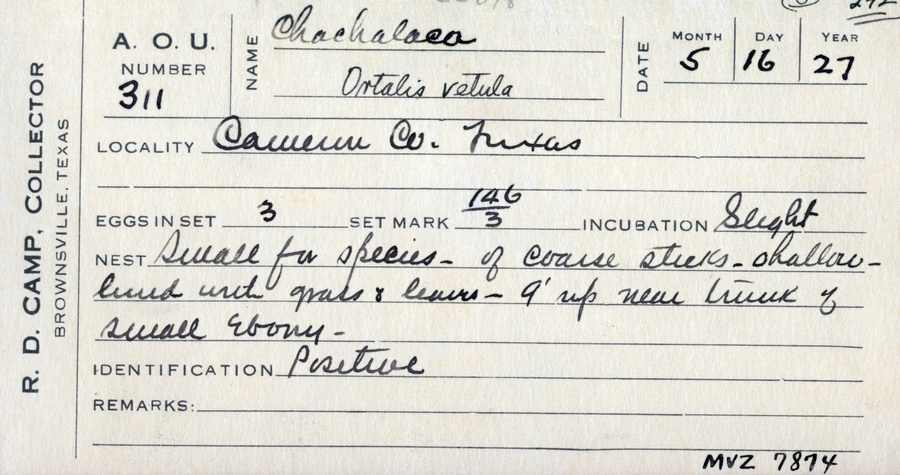 A. O. U.
NUMBER
311
NAME
Chachalaca
Ortalis vetula
DATE
MONTH DAY YEAR
5 16 27
LOCALITY Cameron Co. Texas
EGGS IN SET 3 SET MARK 146/3 INCUBATION Slight
NEST Small for species - of coarse sticks - shallow -
lined with grass & leaves - 9' up near trunk of
small Ebony -
IDENTIFICATION Positive
REMARKS:
MVZ 7874
R. D. CAMP, COLLECTOR
BROWNSVILLE, TEXAS